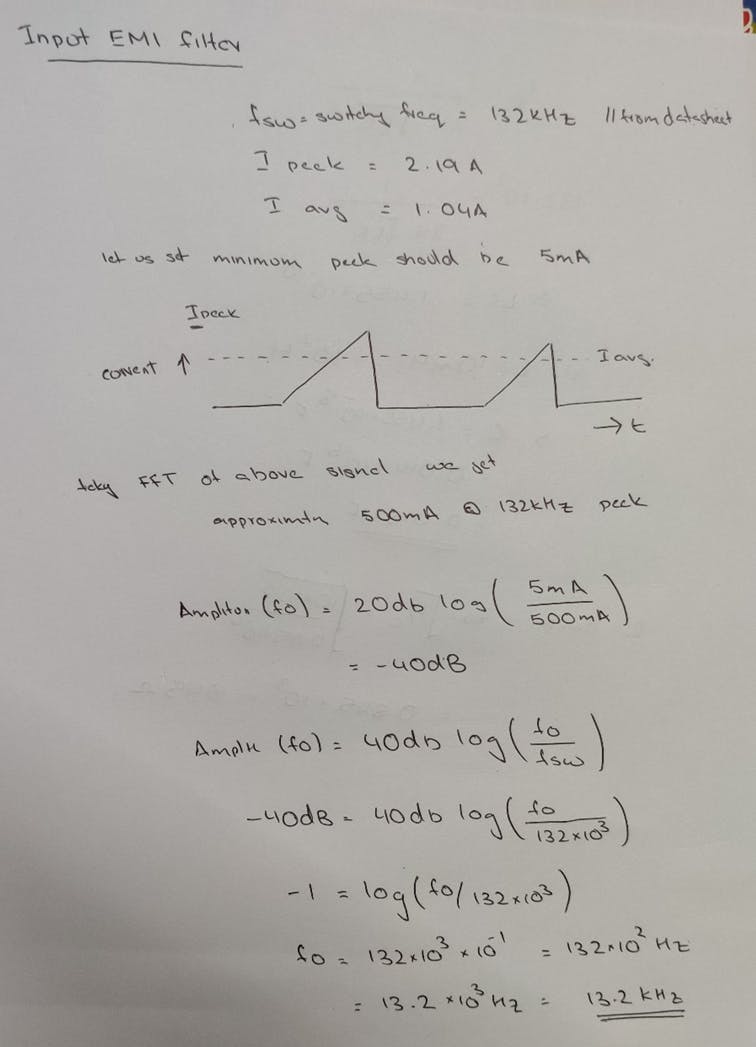 Input EMI filter
fsw = switchy freq = 132kHz // from datasheet
I peck = 2.19 A
I avg = 1.04A
let us set minimum peck should be 5mA
Ipeck
current ↑
I avg.
→ t
taky FFT of above signal we get
approximatn 500mA @ 132kHz peck
(fo) = 20db log(5mA/500mA)
= -40dB
(fo) = 40db log(fo/fsw)
-40dB = 40db log(fo/132×10³)
-1 = log(fo/132×10³)
fo = 132×10³ × 10⁻¹ = 132×10² Hz
= 13.2 ×10³ Hz = 13.2 kHz